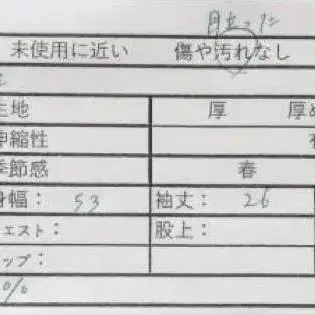 目立った
未使用に近い 傷や汚れなし
生地 厚 厚め
伸縮性
季節感 春
身幅： 53 袖丈： 26
ウエスト： 股上：
ップ：
0%